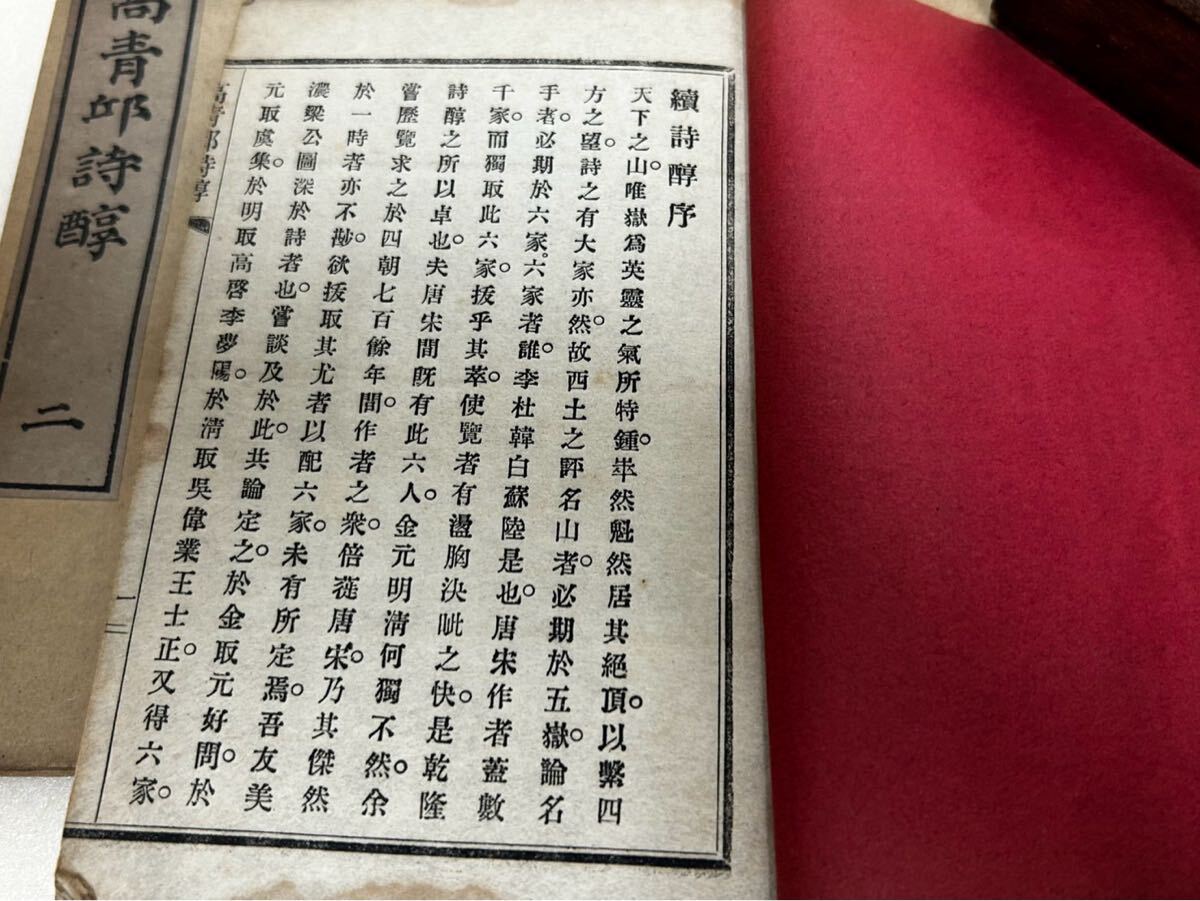 續詩醇序
天下之山。唯嶽爲英靈之氣所特鍾。崒然魁然居其絕頂。以繫四
方之望。詩之有大家亦然。故西土之評名山者。必期於五嶽。論名
手者。必期於六家。六家者誰。李杜韓白蘇陸是也。唐宋作者蓋數
千家。而獨取此六家。拔乎其萃。使覽者有盪胸決眦之快。是乾隆
詩醇之所以卓也。夫唐宋間既有此六人。金元明淸何獨不然。余
嘗歷覽求之於四朝七百餘年間。作者之衆。倍蓰唐宋。乃其傑然
於一時者亦不尠。欲拔取其尤者以配六家。未有所定焉。吾友美
濃梁公圖深於詩者也。嘗談及於此。共論定之。於金取元好問。於
元取虞集。於明取高啓李夢陽。於淸取吳偉業王士正。又得六家。
高靑邱詩醇
一
高靑邱詩醇
二